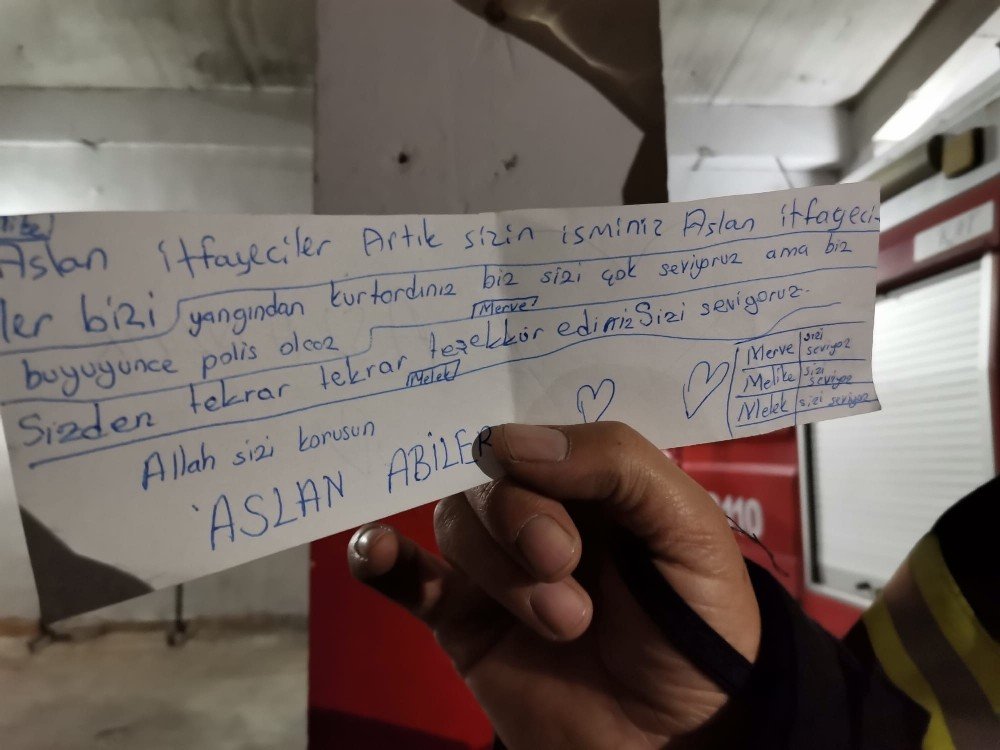 Aslan itfayeciler Artık sizin isminiz Aslan itfayeci-
ler bizi yangından kurtardınız biz sizi çok seviyoruz ama biz
buyuyunce polis olcoz Merve
Sizden tekrar tekrar teşekkür ederiz Sizi seviyoruz.
Melek
Allah sizi korusun
ASLAN ABİLER
Merve sizi seviyoz
Melike sizi seviyoz
Melek sizi seviyoz
110